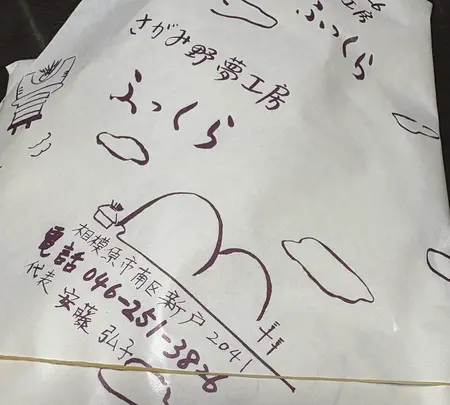 工房
ふっくら
さがみ野夢工房
ふっくら
相模原市南区新戸2041
電話 046-251-3826
代表 安藤 弘子